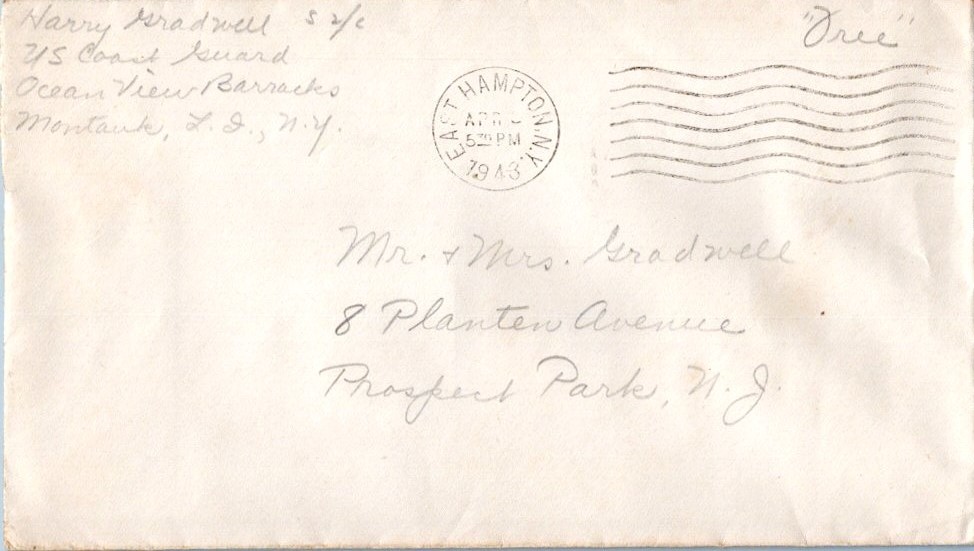 Harry Gradwell S 2/c
US Coast Guard
Ocean View Barracks
Montauk, L.I., N.Y.
"Free"
EAST HAMPTON, N.Y.
APR
5 30 PM
1943
Mr. + Mrs. Gradwell
8 Planten Avenue
Prospect Park, N.J.